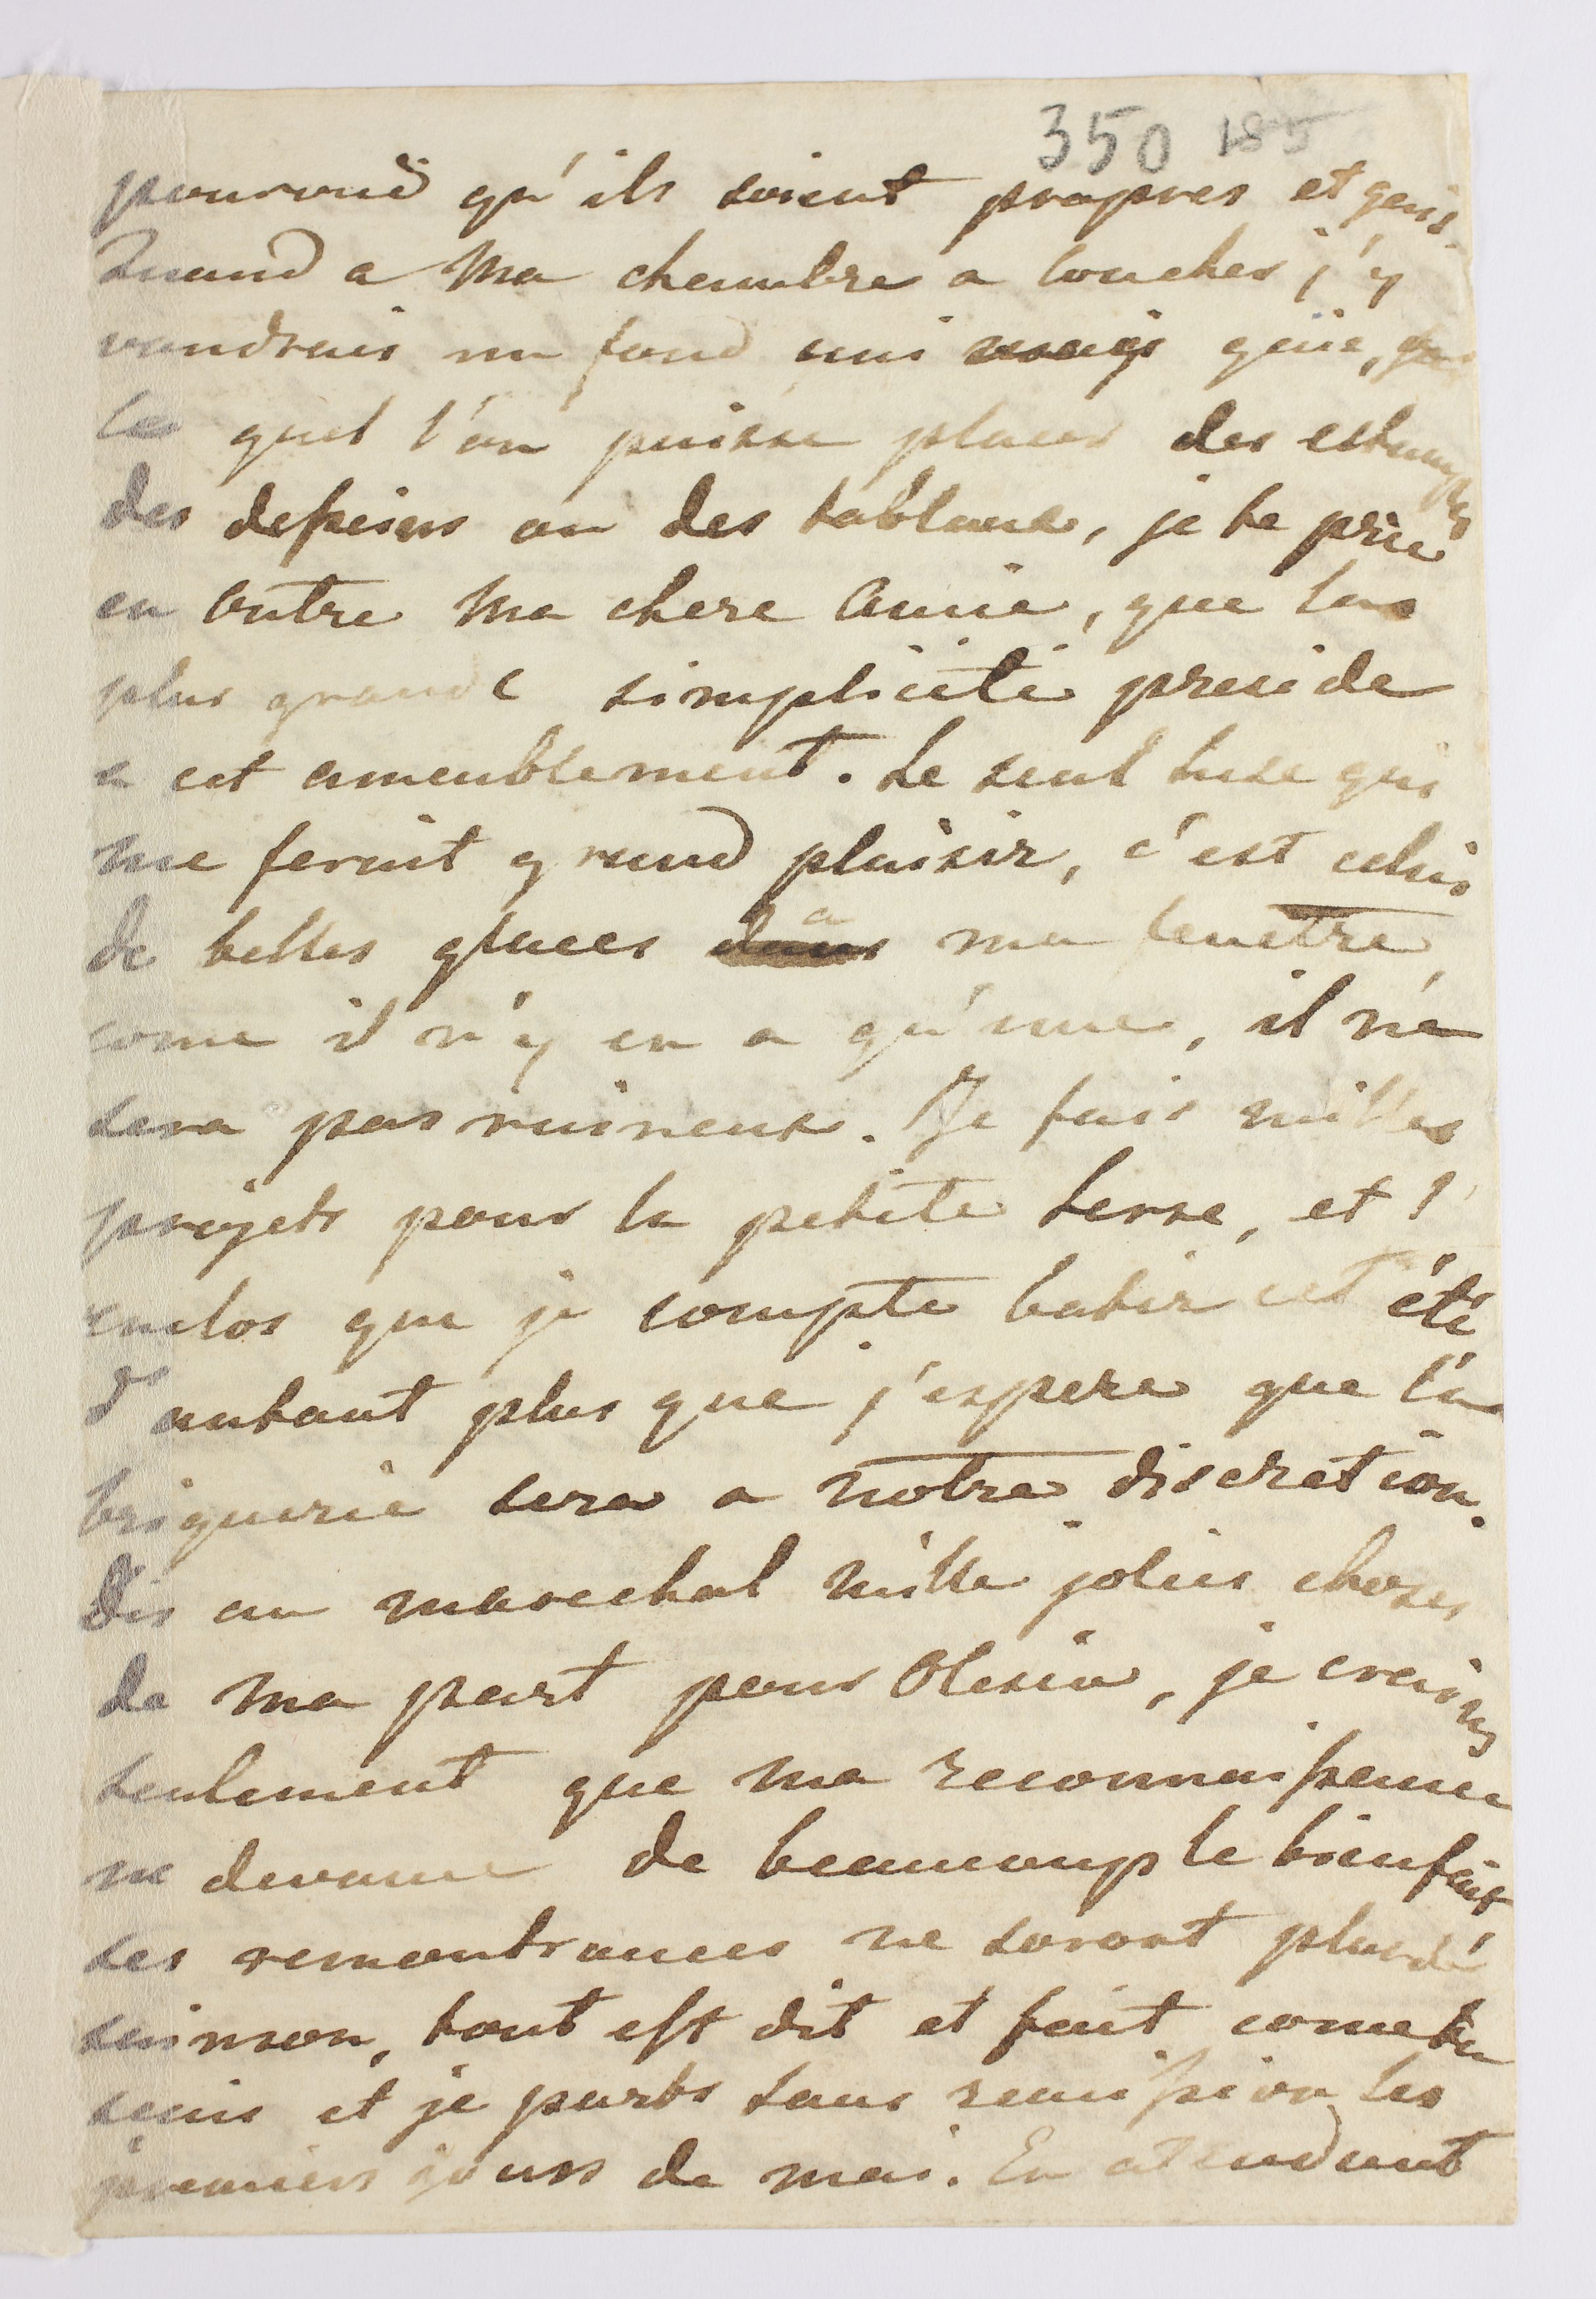 350 185
pourvud qu'ils soient propres et gais.
Quand a ma chembre a coucher j'y
voudrais un fond uni mais gaie, sur
les quel l'on puisse placer des estampes
des dessins ou des tableaux, je te prie
en outre ma chere amie, que la
plus grande simplicité preside
a cet ameublement. Le seul luxe qui
me ferait grand plaisir, c'est celui
de belles glaces dans a ma fenetre,
come il n'y en a qu'une, il ne
sera pas ruineux. Je fais milles
projets pour la petite serre, et l'
enclos que je compte batir cet été
d'autant plus que j'espere que la
briquerie sera a notre discretion.
Dis au marechal mille jolies choses
de ma part pour Olesia, je crains
seulement que ma reconnaissance
ne devance de beaucoup le bienfait
ses remontrances ne soront plus de
sainson, tout est dit et fait come tu
sais et je parts sans remission les
premiers jours de mai. En atendant